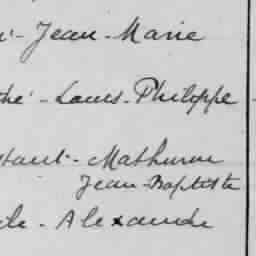 Jean-Marie
Louis-Philippe
Mathurin
Jean-Baptiste
Alexandre